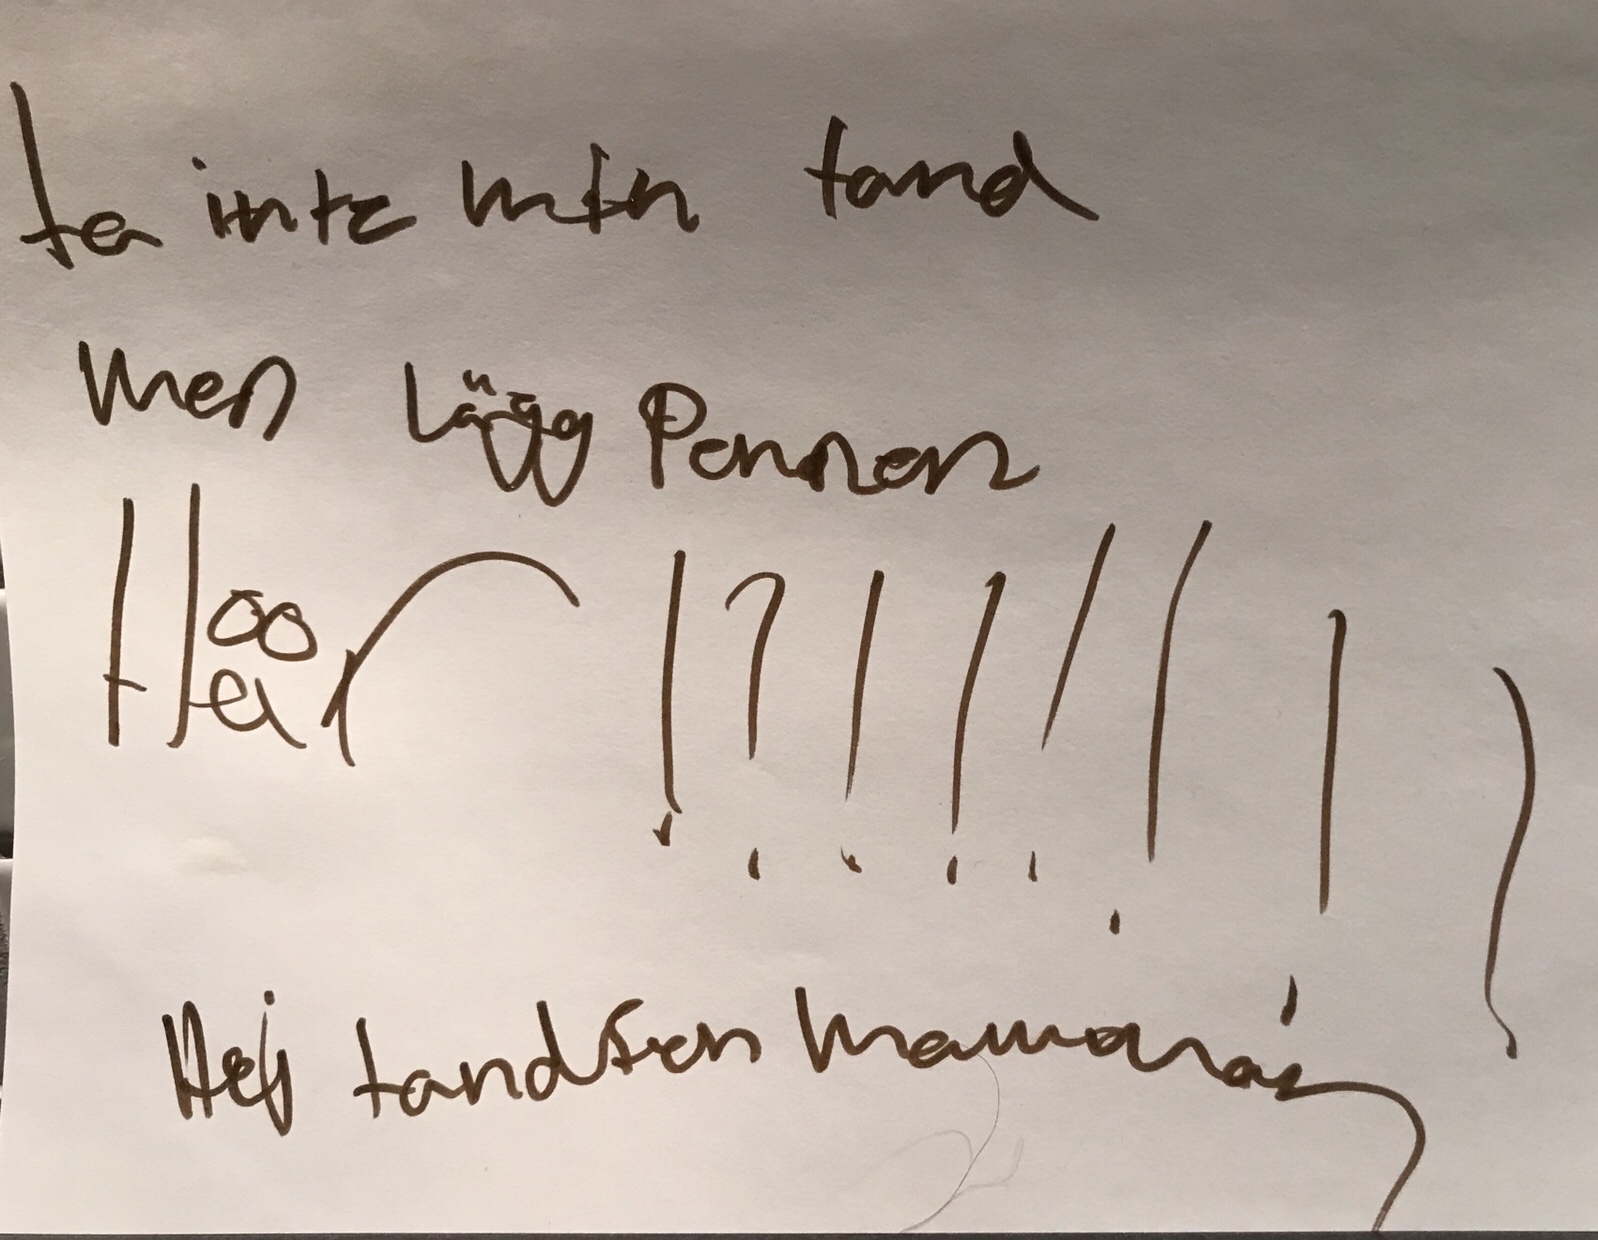 ta inte min tand
men lägg Pennen
Här !?!!!!!
Hej tandfen